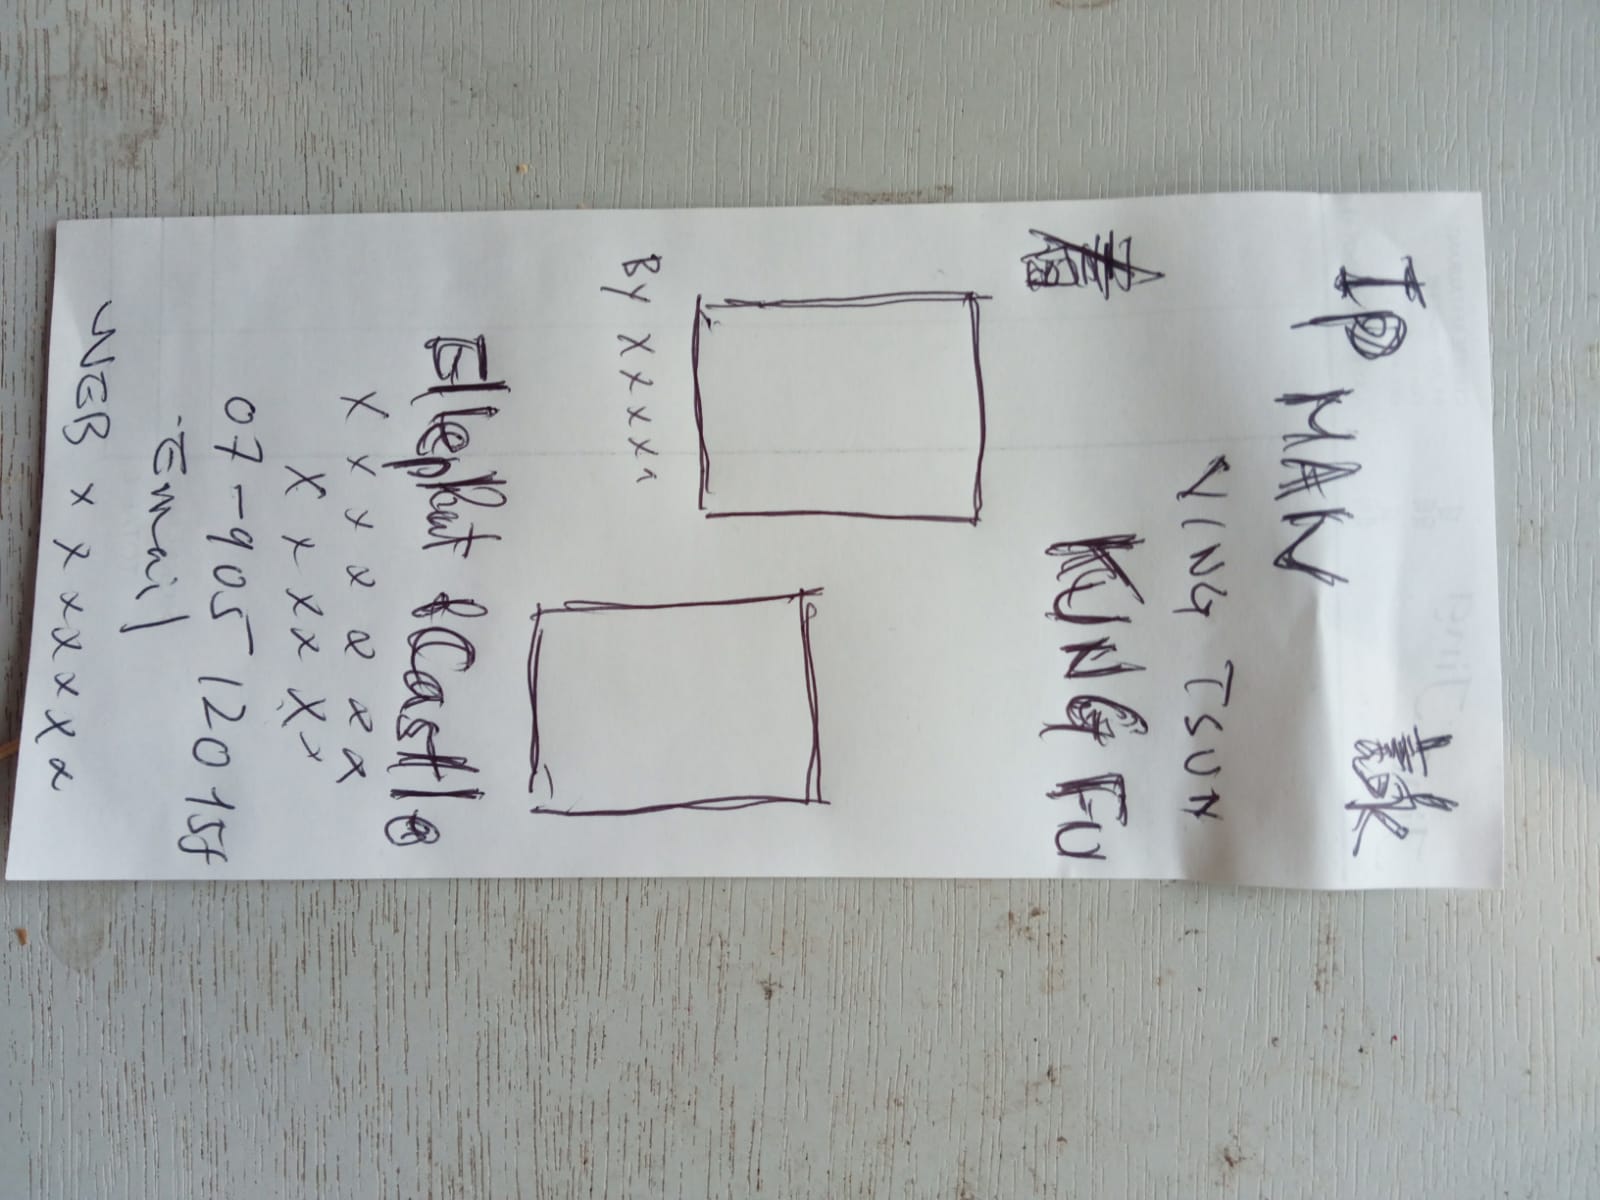 Ip
MAN
VING TSUN
KUNG FU
By x x x x x
Ellephant & Castle
x x x x x x x
x x x x x x
07-905 120 15
Email
WEB x x x x x x x